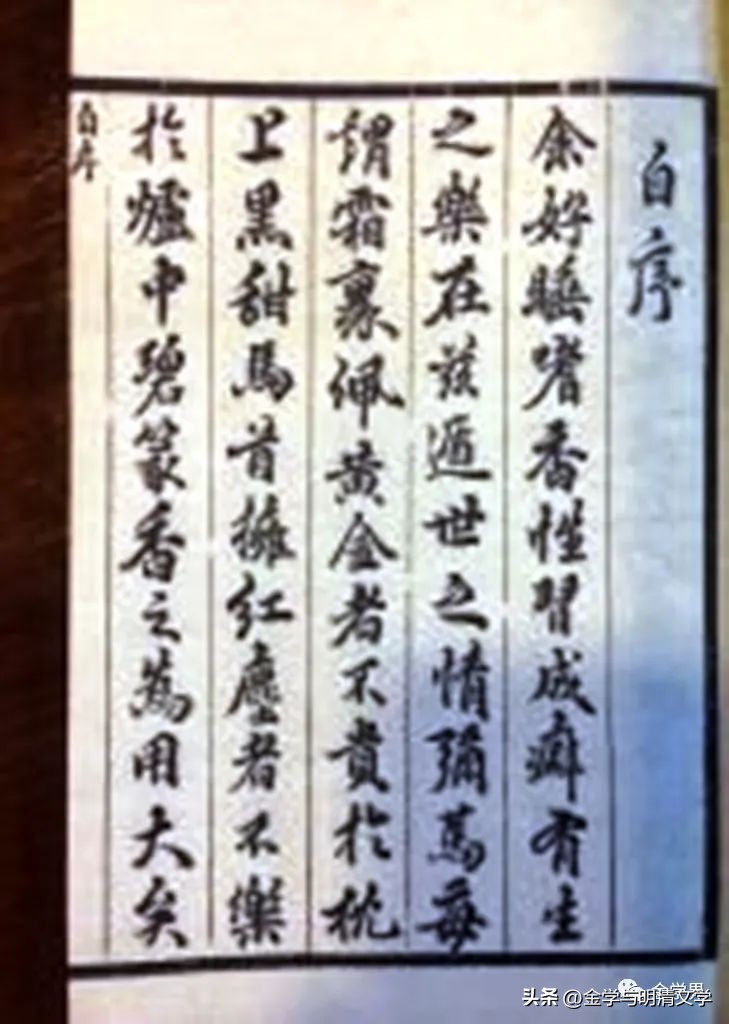 自序
余好睡嗜香性習成癖有生
之樂在茲遁世之情彌篤每
謂霜裹佩黄金者不貴於枕
上黑甜馬首擁紅塵者不樂
於爐中碧篆香之為用大矣
自序
头条 @金学与明清文学
金学界